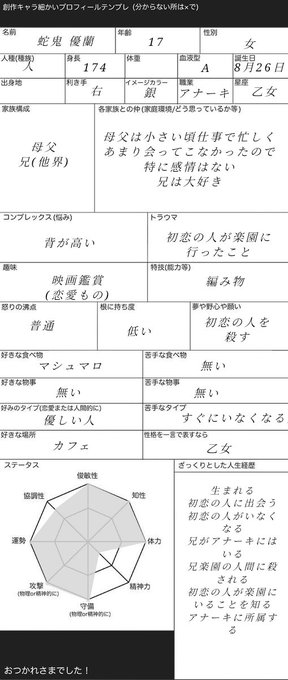 創作キャラ細かいプロフィールテンプレ (分からない所は×で)
名前
蛇鬼 優蘭
年齢
17
性別
女
人種(種族)
人
身長
174
体重
血液型
A
誕生日
8月26日
出身地
利き手
右
イメージカラー
銀
職業
アナーキ
星座
乙女
家族構成
母父
兄(他界)
各家族との仲(家庭環境/どう思っているか等)
母父は小さい頃仕事で忙しく
あまり会ってこなかったので
特に感情はない
兄は大好き
コンプレックス(悩み)
背が高い
トラウマ
初恋の人が楽園に
行ったこと
趣味
映画鑑賞
(恋愛もの)
特技(能力等)
編み物
怒りの沸点
普通
根に持ち度
低い
夢や野心や願い
初恋の人を
殺す
好きな食べ物
マシュマロ
苦手な食べ物
無い
好きな物事
無い
苦手な物事
無い
好みのタイプ(恋愛または人間的に)
優しい人
苦手なタイプ
すぐにいなくなる
好きな場所
カフェ
性格を一言で表すなら
乙女
ステータス
俊敏性
知性
体力
精神力
守備
(物理or精神的に)
攻撃
(物理or精神的に)
運勢
協調性
ざっくりとした人生経歴
生まれる
初恋の人に出会う
初恋の人がいなく
なる
兄がアナーキには
いる
兄楽園の人間に殺
される
初恋の人が楽園に
いることを知る
アナーキに所属す
る
おつかれさまでした！